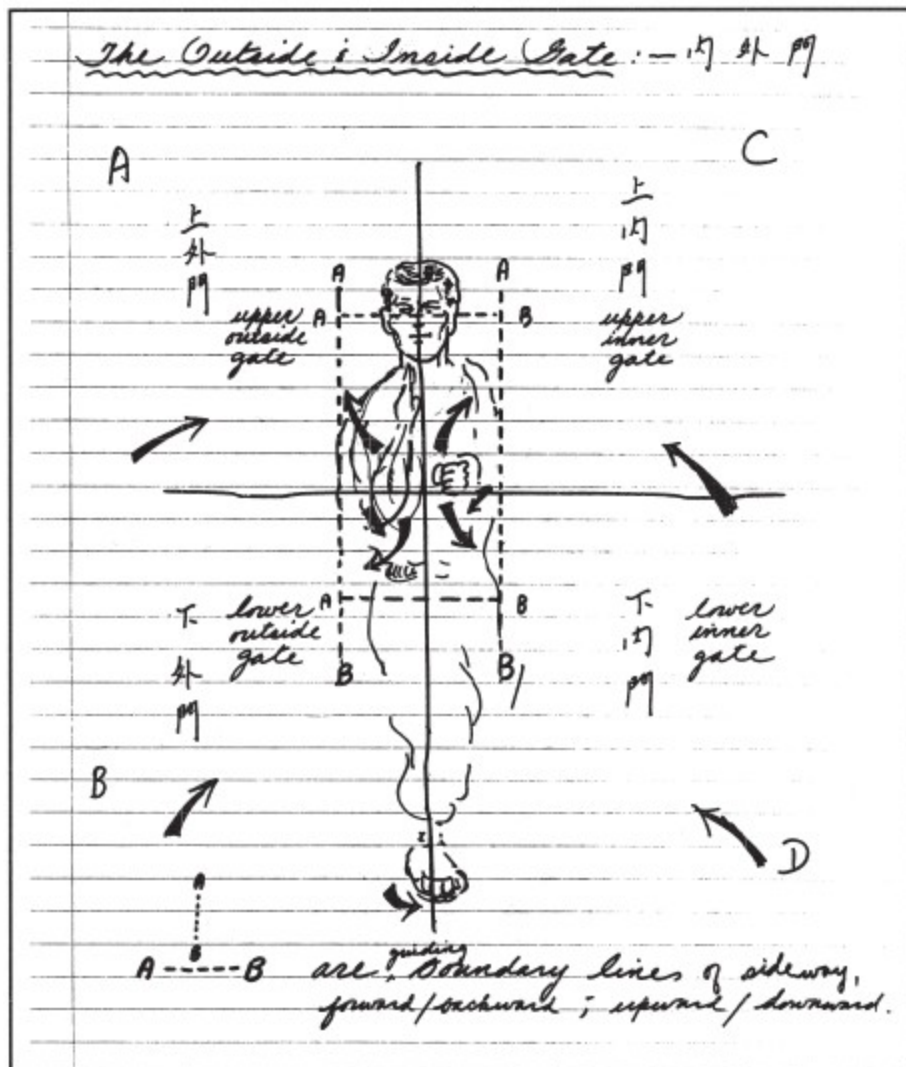 The Outside & Inside Gate :— 内外門
A
C
上外門
上内門
A
A
A
B
upper
outside
gate
upper
inner
gate
A
B
下外門
lower
outside
gate
下内門
lower
inner
gate
B
B
B
D
A
B
A
B
are guiding boundary lines of sideway,
forward/backward ; upward / downward.